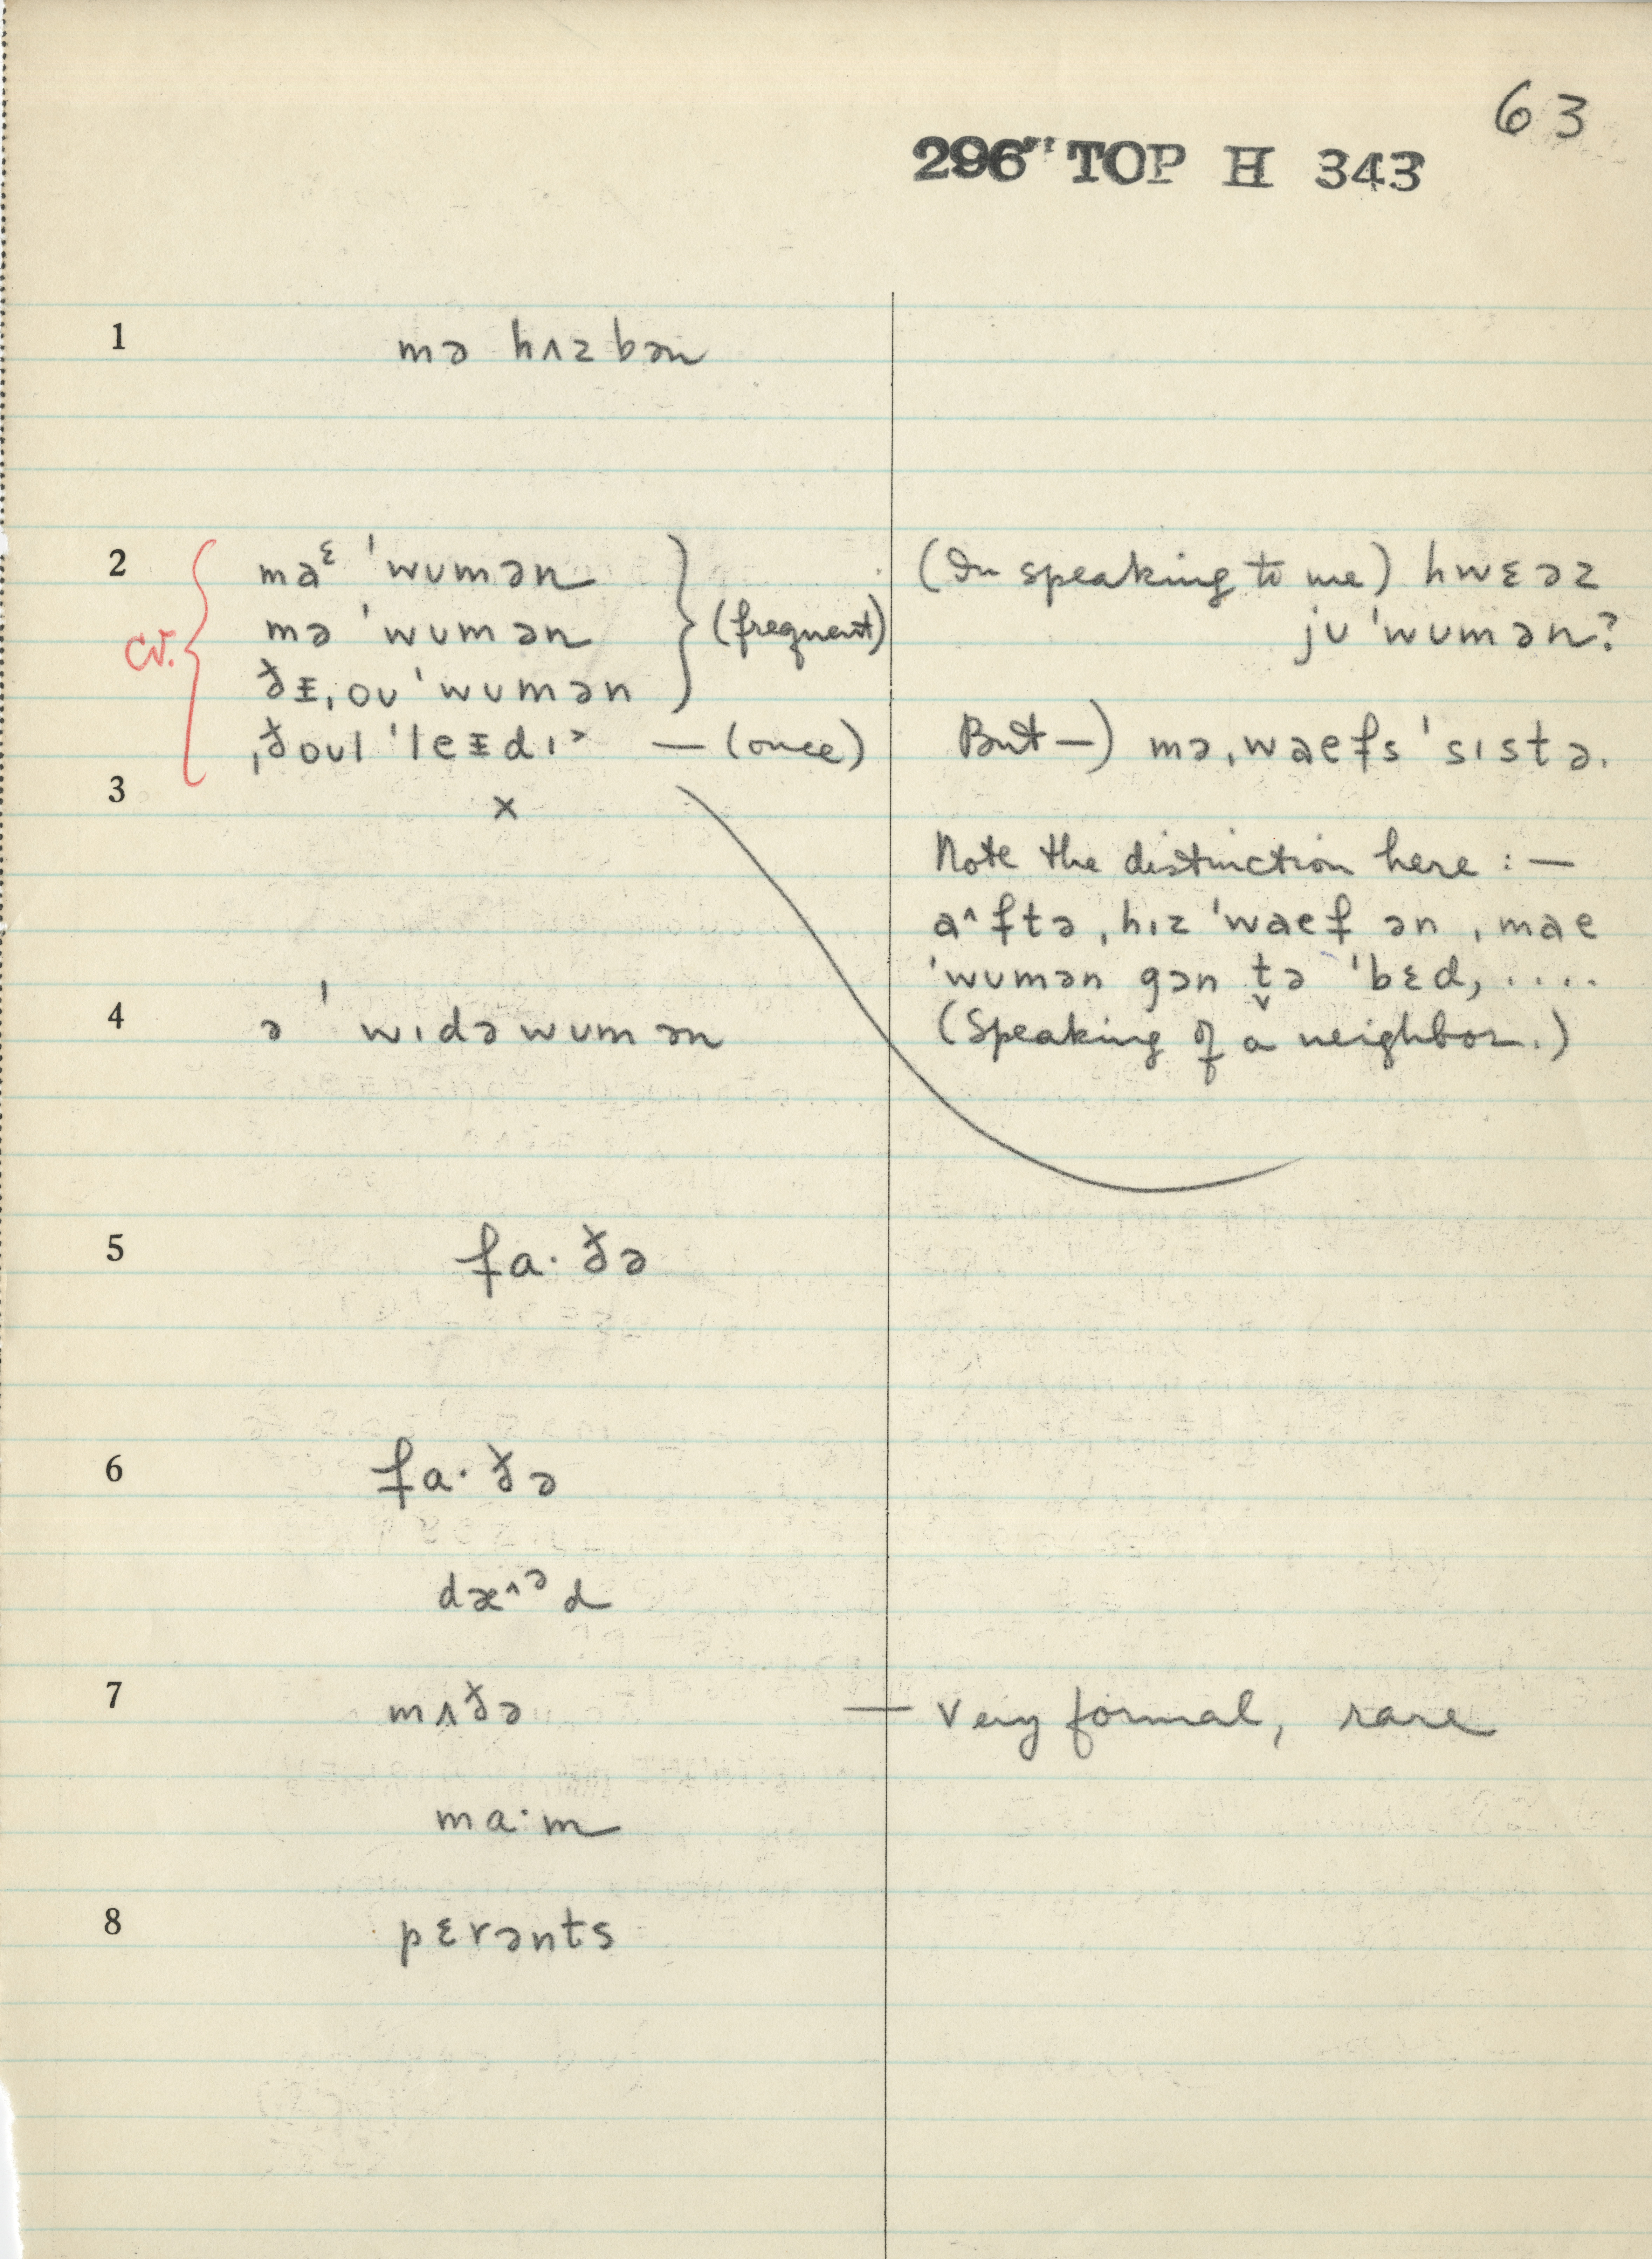 63
296" TOP H 343
1 mə hʌzbən
2 maᵋ ˈwʊmən
mə ˈwʊmən } (frequent)
cv. {
ðɪ̵ˌoʊ ˈwʊmən
ˌðoʊl ˈleɪ̵dɪ˃ — (once)
(In speaking to me) hwɛəz
jʊ ˈwʊmən?
But —) məˌwaefs ˈsɪstə.
3 x
Note the distinction here : —
a^ftəˌhɪz ˈwaef ənˌmae
ˈwʊmən gən t̬ə ˈbɛd, ....
(Speaking of a neighbor.)
4 ə ˈwɪdəwʊmən
5 fa·ðə
6 fa·ðə
dæ^ᵊd
7 mʌðə — very formal, rare
ma·m
8 pɛrənts